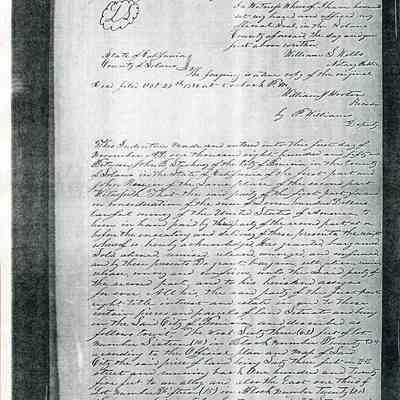 In Witness Whereof I have hereunto
set my hand and affixed my
Notarial Seal, in the
County aforesaid the day and
year above written
William S. Wells
Notary Public
State of California
County of Solano
The foregoing is a true copy of the original
at o'clock P.M.
William
by P Williams
Deputy
This Indenture Made and entered into this first day of
November AD. one thousand eight hundred and fifty
Between John B. of the City of Benicia in the County
of Solano in the State of California of the first part and
John of the Same place of the second part
Witnesseth That the said party of the first part for and
in consideration of the sum of hundred Dollars
lawful money of the United States of America to
him in hand paid by the party of the second part at or
before the ensealing and delivery of these presents the receipt
whereof is hereby acknowledged Has granted bargained
Sold aliened remised released conveyed and confirmed
and by these presents Do grant bargain sell alien remise
release convey and confirm unto the Said party of
the second part, and to his heirs and assigns
forever All the the said party of the first part
right title interest and estate in and to those
certain pieces and parcels of land Situate and being
in the Said City of Benicia and described as
follows to wit: The East Sixty three (63) feet of Lot
number Sixteen (16) in Block number Twenty
according to the Official plan and map of Said
City the Said piece of land being Sixty three feet on
street and running back One hundred and twenty
five feet to an alley and also the East one third of
Lot number Fifteen (15) in Block number twenty